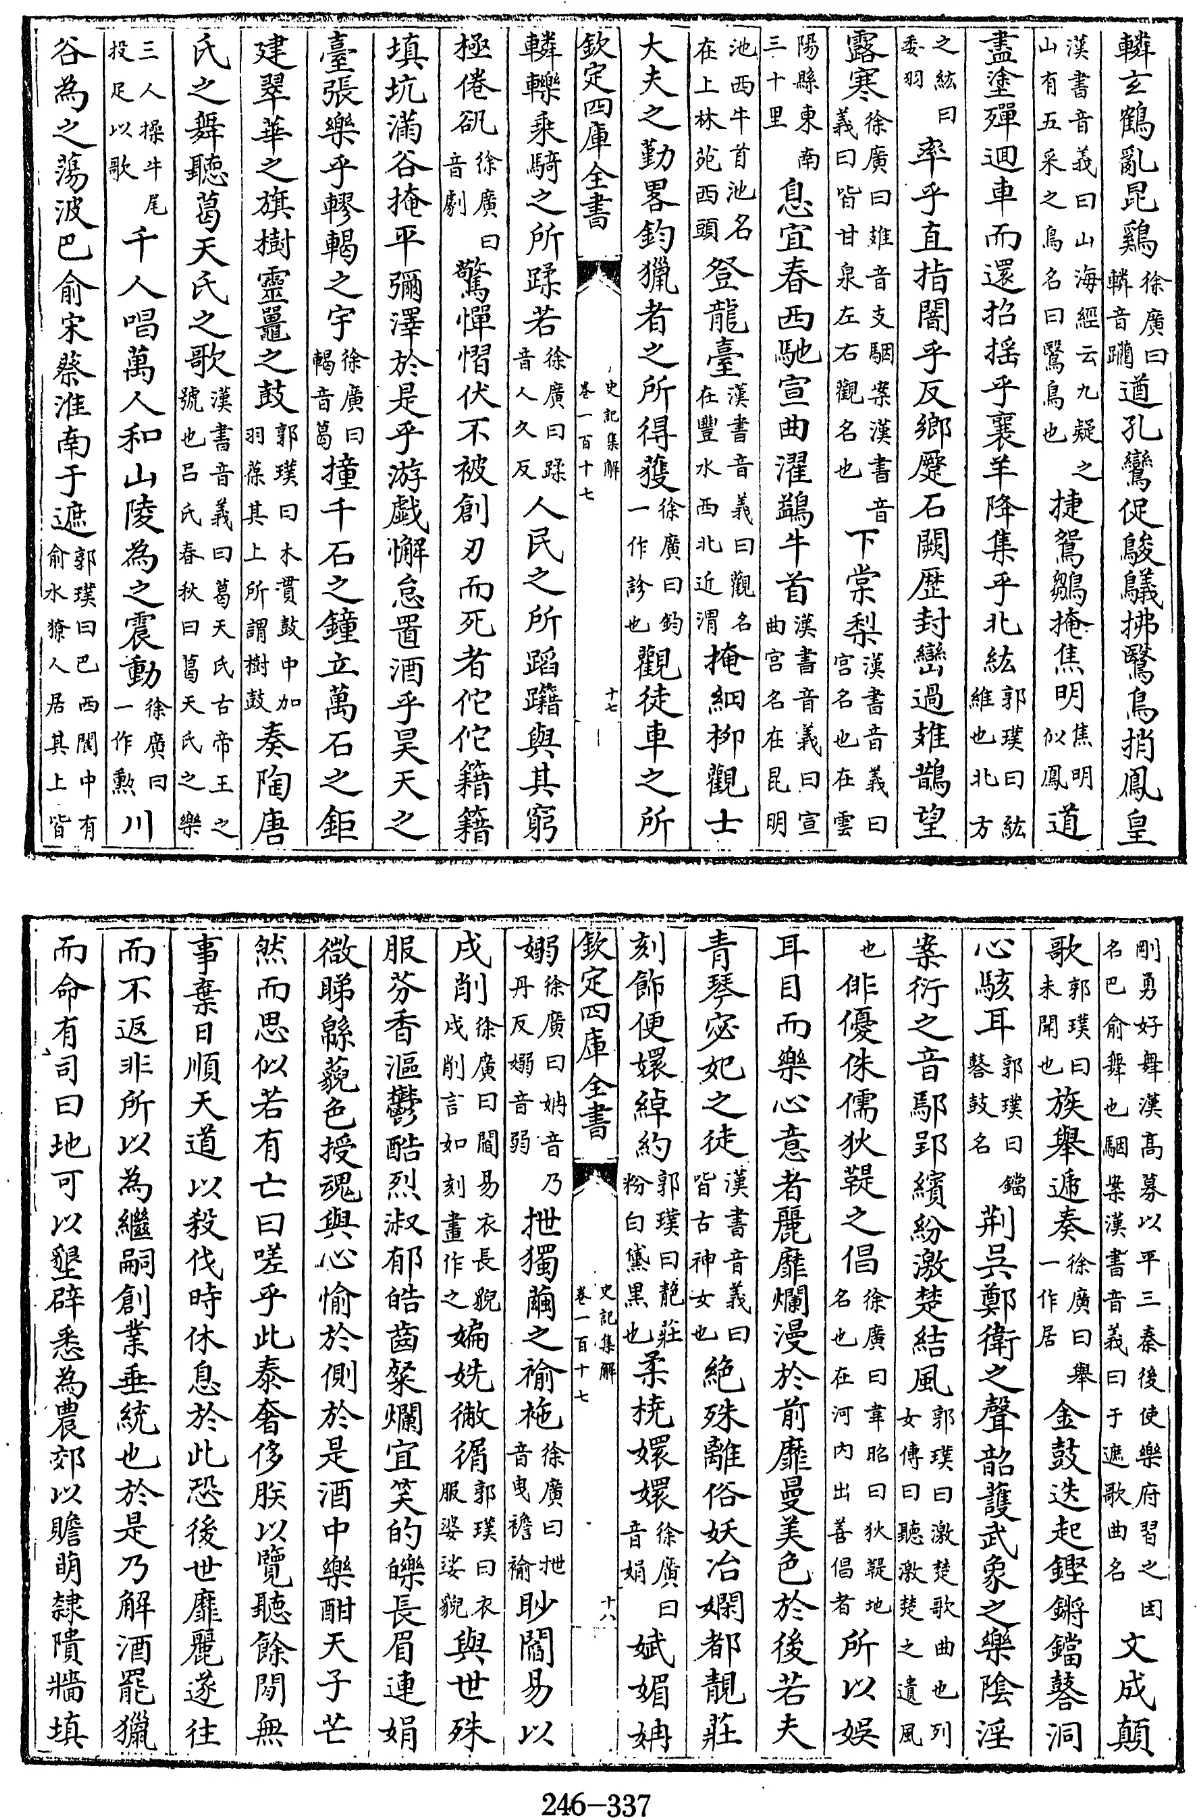 轔玄鶴亂昆鷄徐廣曰轔音躪遒孔鸞促鵔鸃拂鷖鳥捎鳳皇
漢書音義曰山海經云九疑之山有五采之鳥名曰鷖鳥也捷鴛鶵掩焦明焦明似鳳道
盡塗殫迴車而還招搖乎襄羊降集乎北紘郭璞曰紘維也北方
之紘曰委羽率乎直指闇乎反鄉蹷石闕歴封巒過䧴鵲望
露寒徐廣曰䧴音支駰案漢書音義曰皆甘泉左右觀名也下棠梨漢書音義曰宫名也在雲
陽縣東南三十里息宜春西馳宣曲濯鷁牛首漢書音義曰宣曲宫名在昆明
池西牛首池名在上林苑西頭登龍臺漢書音義曰觀名在豐水西北近渭掩細柳觀士
大夫之勤畧鈞獵者之所得獲徐廣曰鈞一作診也觀徒車之所
欽定四庫全書 史記集解卷一百十七 十七
轔轢乘騎之所蹂若徐廣曰蹂音人久反人民之所蹈躤與其窮
極倦㕁徐廣曰音劇驚憚慴伏不被創刃而死者佗佗籍籍
填坑滿谷掩平彌澤於是乎游戲懈怠置酒乎昊天之
臺張樂乎轇輵之宇徐廣曰輵音葛撞千石之鐘立萬石之鉅
建翠華之旗樹靈鼉之鼓郭璞曰木貫鼓中加羽葆其上所謂樹鼓奏陶唐
氏之舞聽葛天氏之歌漢書音義曰葛天氏古帝王之號也吕氏春秋曰葛天氏之樂
三人操牛尾投足以歌千人唱萬人和山陵為之震動徐廣曰一作勲川
谷為之蕩波巴俞宋蔡淮南于遮郭璞曰巴西閬中有俞水獠人居其上皆
剛勇好舞漢高募以平三秦後使樂府習之因名巴俞舞也駰案漢書音義曰于遮歌曲名文成顛
歌郭璞曰未聞也族舉遞奏徐廣曰舉一作居金鼓迭起鏗鏘鐺鼛洞
心駭耳郭璞曰鐺鼛鼓名荆吳鄭衛之聲韶頀武象之樂陰淫
案衍之音鄢郢繽紛激楚結風郭璞曰激楚歌曲也列女傳曰聽激楚之遺風
也俳優侏儒狄鞮之倡徐廣曰韋昭曰狄鞮地名也在河内出善倡者所以娛
耳目而樂心意者麗靡爛漫於前靡曼美色於後若夫
青琴宓妃之徒漢書音義曰皆古神女也絶殊離俗妖冶嫺都靚莊
刻飾便嬛綽約郭璞曰靚莊粉白黛黑也柔橈嬛嬛徐廣曰音娟娬媚姌
欽定四庫全書 史記集解卷一百十七 十八
嫋徐廣曰姌音乃丹反嫋音弱抴獨繭之褕袘徐廣曰抴音曳襜褕眇閻易以
戌削徐廣曰閻易衣長貌戌削言如刻畫作之媥姺徶㣯郭璞曰衣服婆娑貌與世殊
服芬香漚鬱酷烈淑郁皓齒粲爛宜笑的皪長眉連娟
微睇緜藐色授魂與心愉於側於是酒中樂酣天子芒
然而思似若有亡曰嗟乎此泰奢侈朕以覽聽餘閒無
事棄日順天道以殺伐時休息於此恐後世靡麗遂往
而不返非所以為繼嗣創業垂統也於是乃解酒罷獵
而命有司曰地可以墾辟悉為農郊以贍萌隸隤墻填
246-337